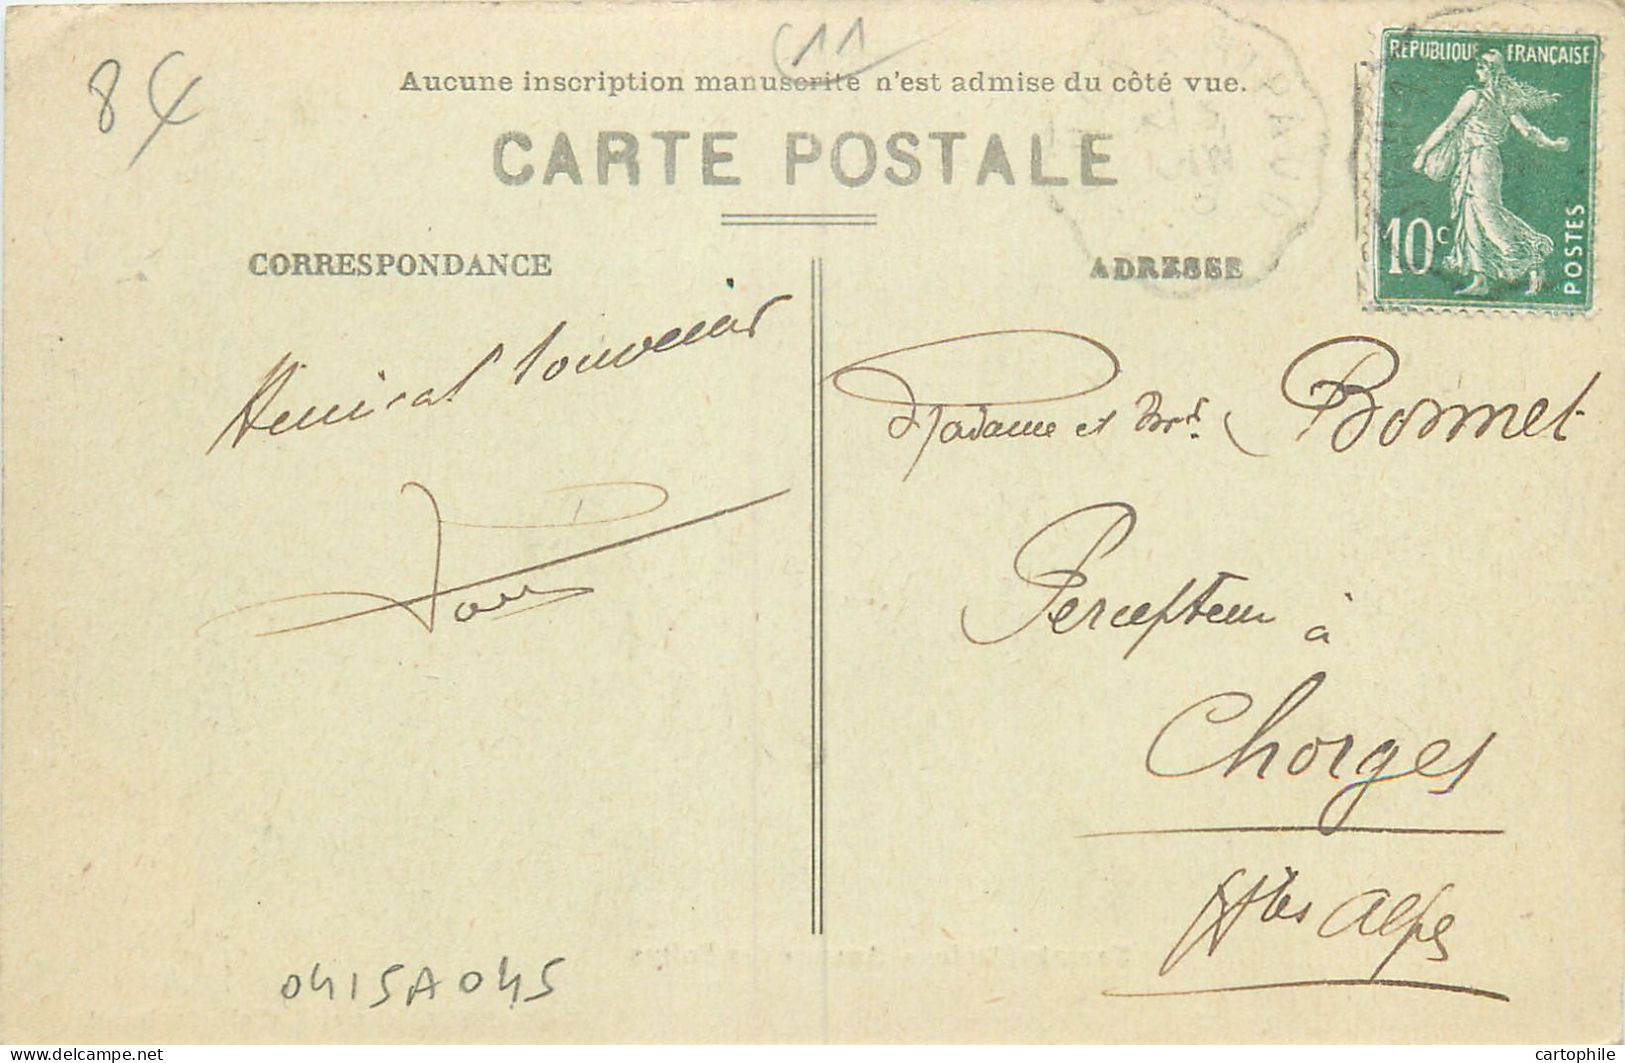 8€
11
Aucune inscription manuscrite n'est admise du côté vue.
CARTE POSTALE
REPUBLIQUE FRANÇAISE
10c
POSTES
CORRESPONDANCE
ADRESSE
Amical souvenir
Madame et Mr. Bonnet
Percepteur à
Chorges
Htes Alpes
0415A045
delcampe.net
cartophile